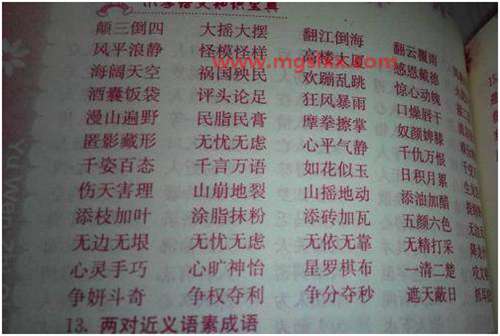 小学语文知识宝典
颠三倒四 大摇大摆 翻江倒海 翻云覆雨
风平浪静 怪模怪样 高楼大厦 感恩戴德
www.mgslxx.com
海阔天空 祸国殃民 欢蹦乱跳 惊心动魄
酒囊饭袋 评头论足 狂风暴雨 口燥唇干
漫山遍野 民脂民膏 摩拳擦掌 奴颜婢膝
匿影藏形 无忧无虑 心平气静 千仇万恨
千姿百态 千言万语 如花似玉 日积月累
伤天害理 山崩地裂 山摇地动 添油加醋
添枝加叶 涂脂抹粉 添砖加瓦 五颜六色
无边无垠 无忧无虑 无依无靠 无精打采
心灵手巧 心旷神怡 星罗棋布 一清二楚
争妍斗奇 争权夺利 争分夺秒 遮天蔽日
13. 两对近义语素成语